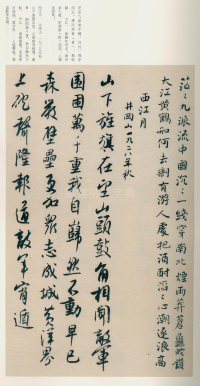 茫〻九派流中國沉〻一綫穿南北煙雨莽蒼〻龜蛇鎖
大江黄鶴知何去剩有游人處把酒酹滔〻心潮逐浪高
西江月
井岡山一九二八年秋
山下旌旗在望山頭鼓角相聞敵軍
圍困萬千重我自巋然不動早已
森嚴壁壘更加衆志成城黄洋界
上砲聲隆報道敵軍宵遁